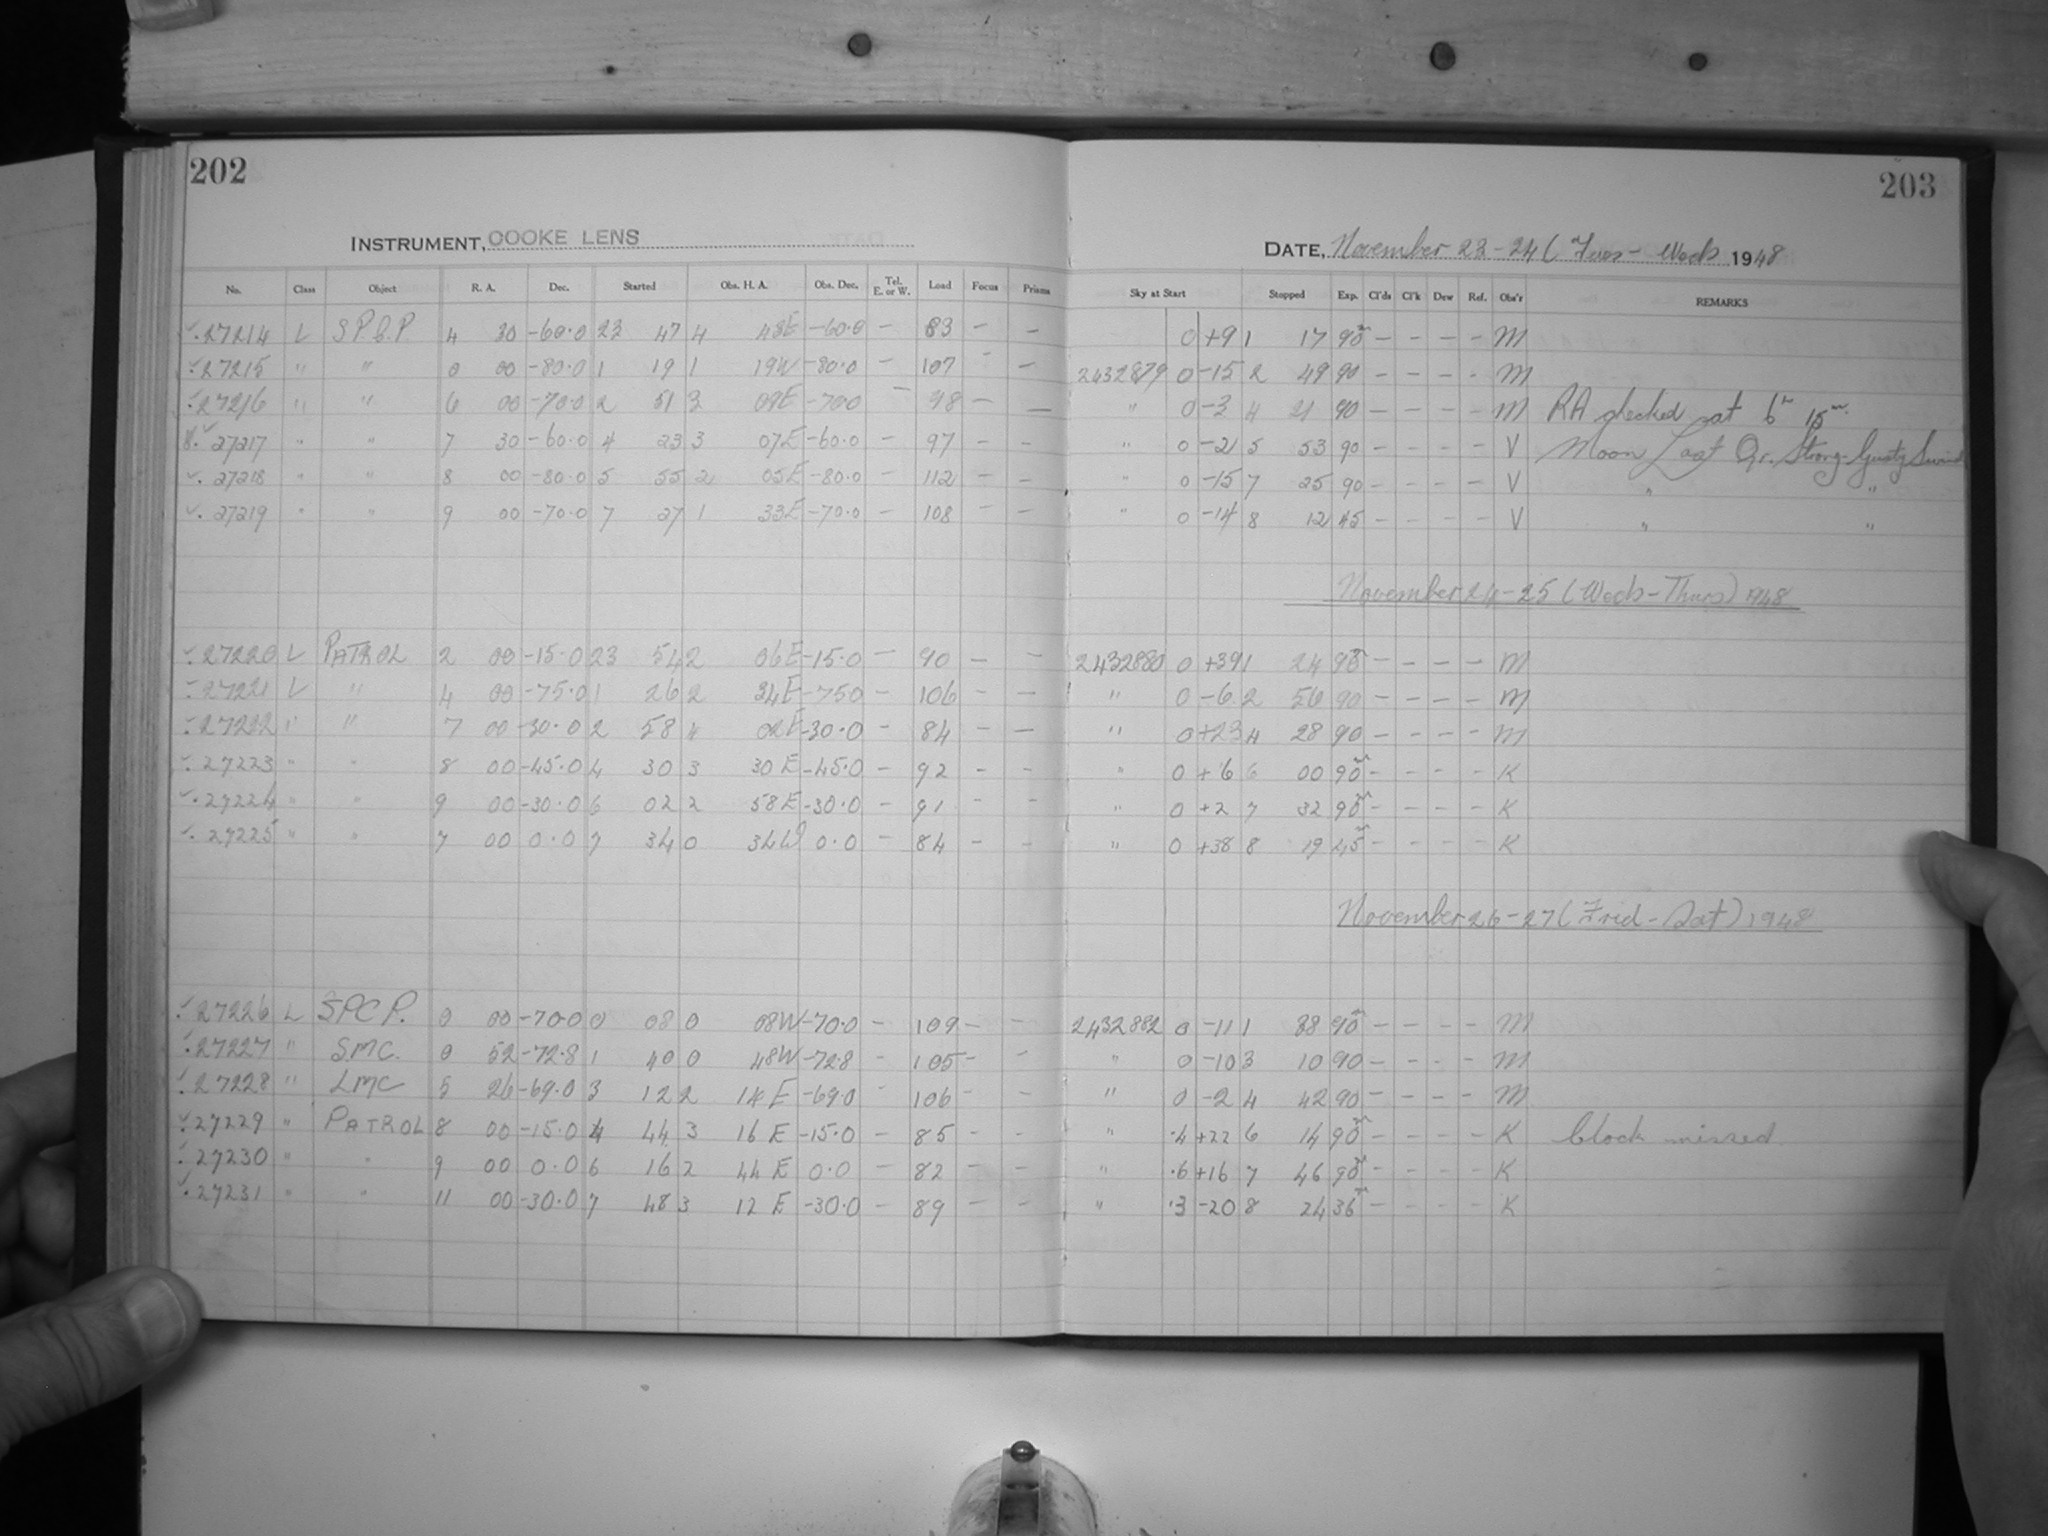 202
203
INSTRUMENT, COOKE LENS
DATE, November 23-24 (Tues - Weds 1948
No. Class Object R. A. Dec. Started Obs. H. A. Obs. Dec. Tel. E. or W. Load Focus Prisms Sky at Start Stopped Exp. Cl'ds Cl'k Dew Ref. Obs'r REMARKS
27214 L S.P.C.P 4 30 -60.0 23 47 4 48E -60.0 - 83 - - 0 +9 1 17 90m - - - - M
27215 " " 0 00 -80.0 1 19 1 19W -80.0 - 107 - - 2432879 0 -15 2 49 90 - - - - M
27216 " " 6 00 -70.0 2 51 3 09E -70.0 - 98 - - " 0 -3 4 21 90 - - - - M RA checked at 6h 15m
27217 " " 7 30 -60.0 4 23 3 07E -60.0 - 97 - - " 0 -2 5 53 90 - - - - V Moon Last Qr. Strong Gusty S wind
27218 " " 8 00 -80.0 5 55 2 05E -80.0 - 112 - - " 0 -15 7 25 90 - - - - V " "
27219 " " 9 00 -70.0 7 27 1 33E -70.0 - 108 - - " 0 -14 8 12 45 - - - - V " "
November 24-25 (Weds-Thurs) 1948
27220 L PATROL 2 00 -15.0 23 54 2 06E -15.0 - 90 - - 2432880 0 +39 1 24 90m - - - - M
27221 L " 4 00 -75.0 1 26 2 34E -75.0 - 106 - - " 0 -6 2 56 90 - - - - M
27222 " " 7 00 -30.0 2 58 4 02E -30.0 - 84 - - " 0 +23 4 28 90 - - - - M
27223 " " 8 00 -45.0 4 30 3 30E -45.0 - 92 - - " 0 +6 6 00 90m - - - - K
27224 " " 9 00 -30.0 6 02 2 58E -30.0 - 91 - - " 0 +2 7 32 90m - - - - K
27225 " " 7 00 0.0 7 34 0 34W 0.0 - 84 - - " 0 +38 8 19 45m - - - - K
November 26-27 (Frid-Sat) 1948
27226 L SPCP. 0 00 -70.0 0 08 0 08W -70.0 - 109 - - 2432882 0 -11 1 38 90m - - - - M
27227 " SMC. 0 52 -72.8 1 40 0 48W -72.8 - 105 - - " 0 -10 3 10 90 - - - - M
27228 " LMC 5 26 -69.0 3 12 2 14E -69.0 - 106 - - " 0 -2 4 42 90 - - - - M
27229 " PATROL 8 00 -15.0 4 44 3 16E -15.0 - 85 - - " .4 +22 6 14 90m - - - - K Clock missed.
27230 " " 9 00 0.0 6 16 2 44E 0.0 - 82 - - " .6 +16 7 46 90m - - - - K
27231 " " 11 00 -30.0 7 48 3 12E -30.0 - 89 - - " .3 -20 8 24 36m - - - - K